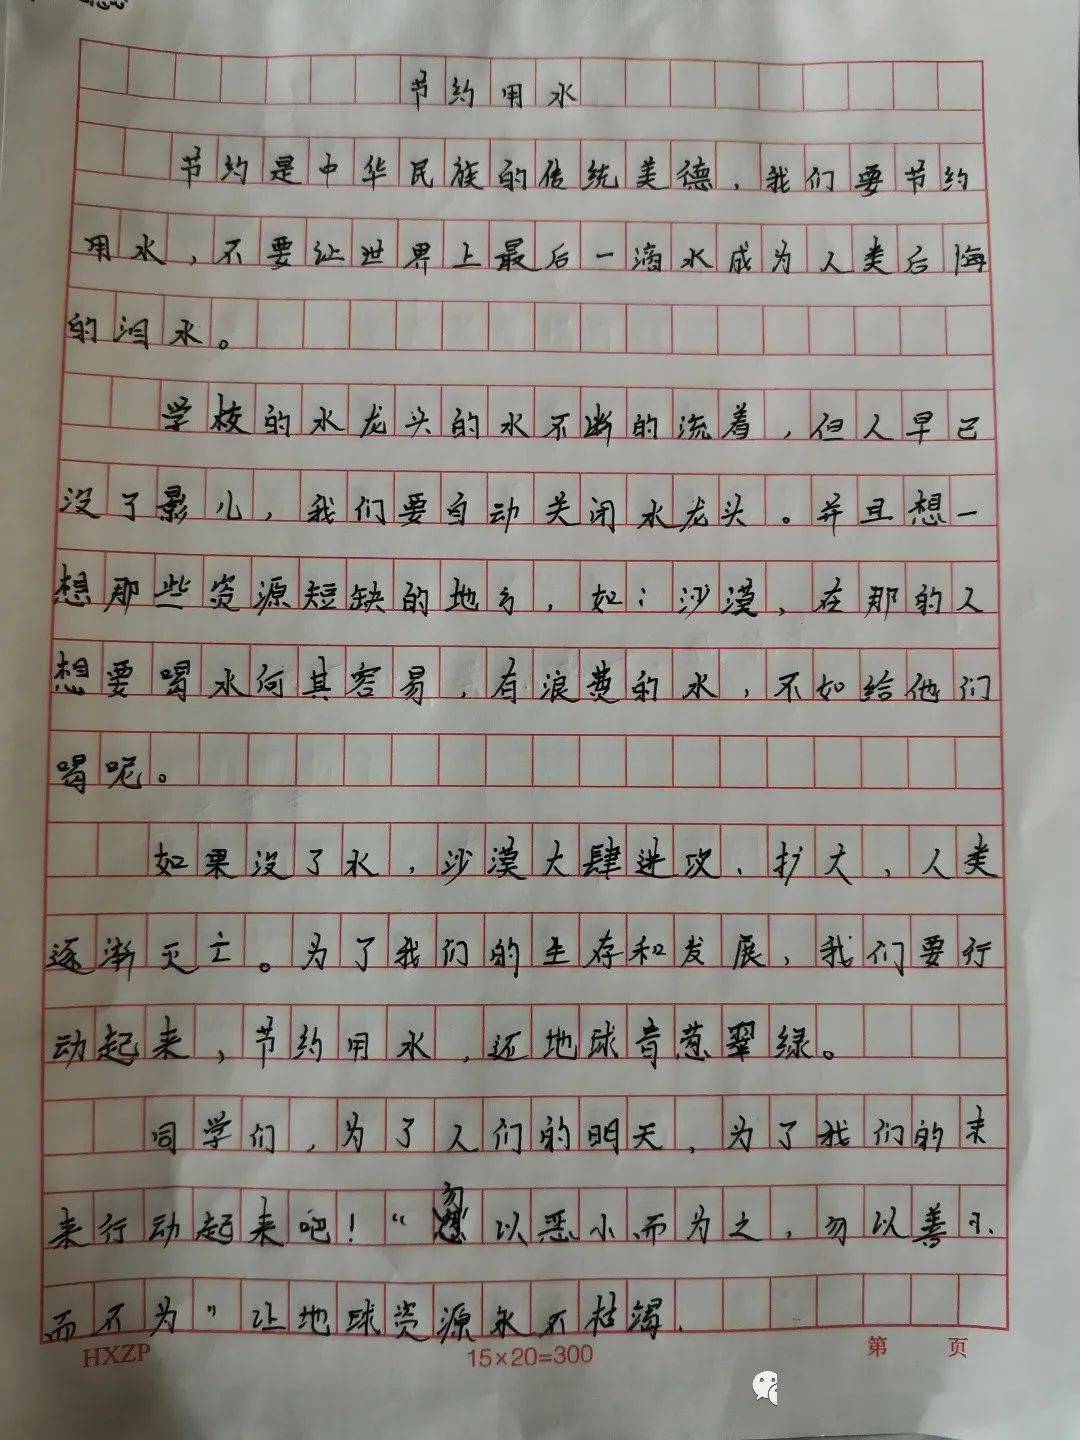 节约用水
节约是中华民族的传统美德，我们要节约
用水，不要让世界上最后一滴水成为人类后悔
的泪水。
学校的水龙头的水不断的流着，但人早已
没了影儿，我们要自动关闭水龙头。并且想一
想那些资源短缺的地方，如：沙漠，在那的人
想要喝水何其容易，有浪费的水，不如给他们
喝呢。
如果没了水，沙漠大肆进攻、扩大，人类
逐渐灭亡。为了我们的生存和发展，我们要行
动起来，节约用水，还地球音葱翠绿。
同学们，为了人们的明天，为了我们的未
来行动起来吧！“勿以恶小而为之，勿以善小
而不为”让地球资源永不枯竭.
HXZP 15×20=300 第 页